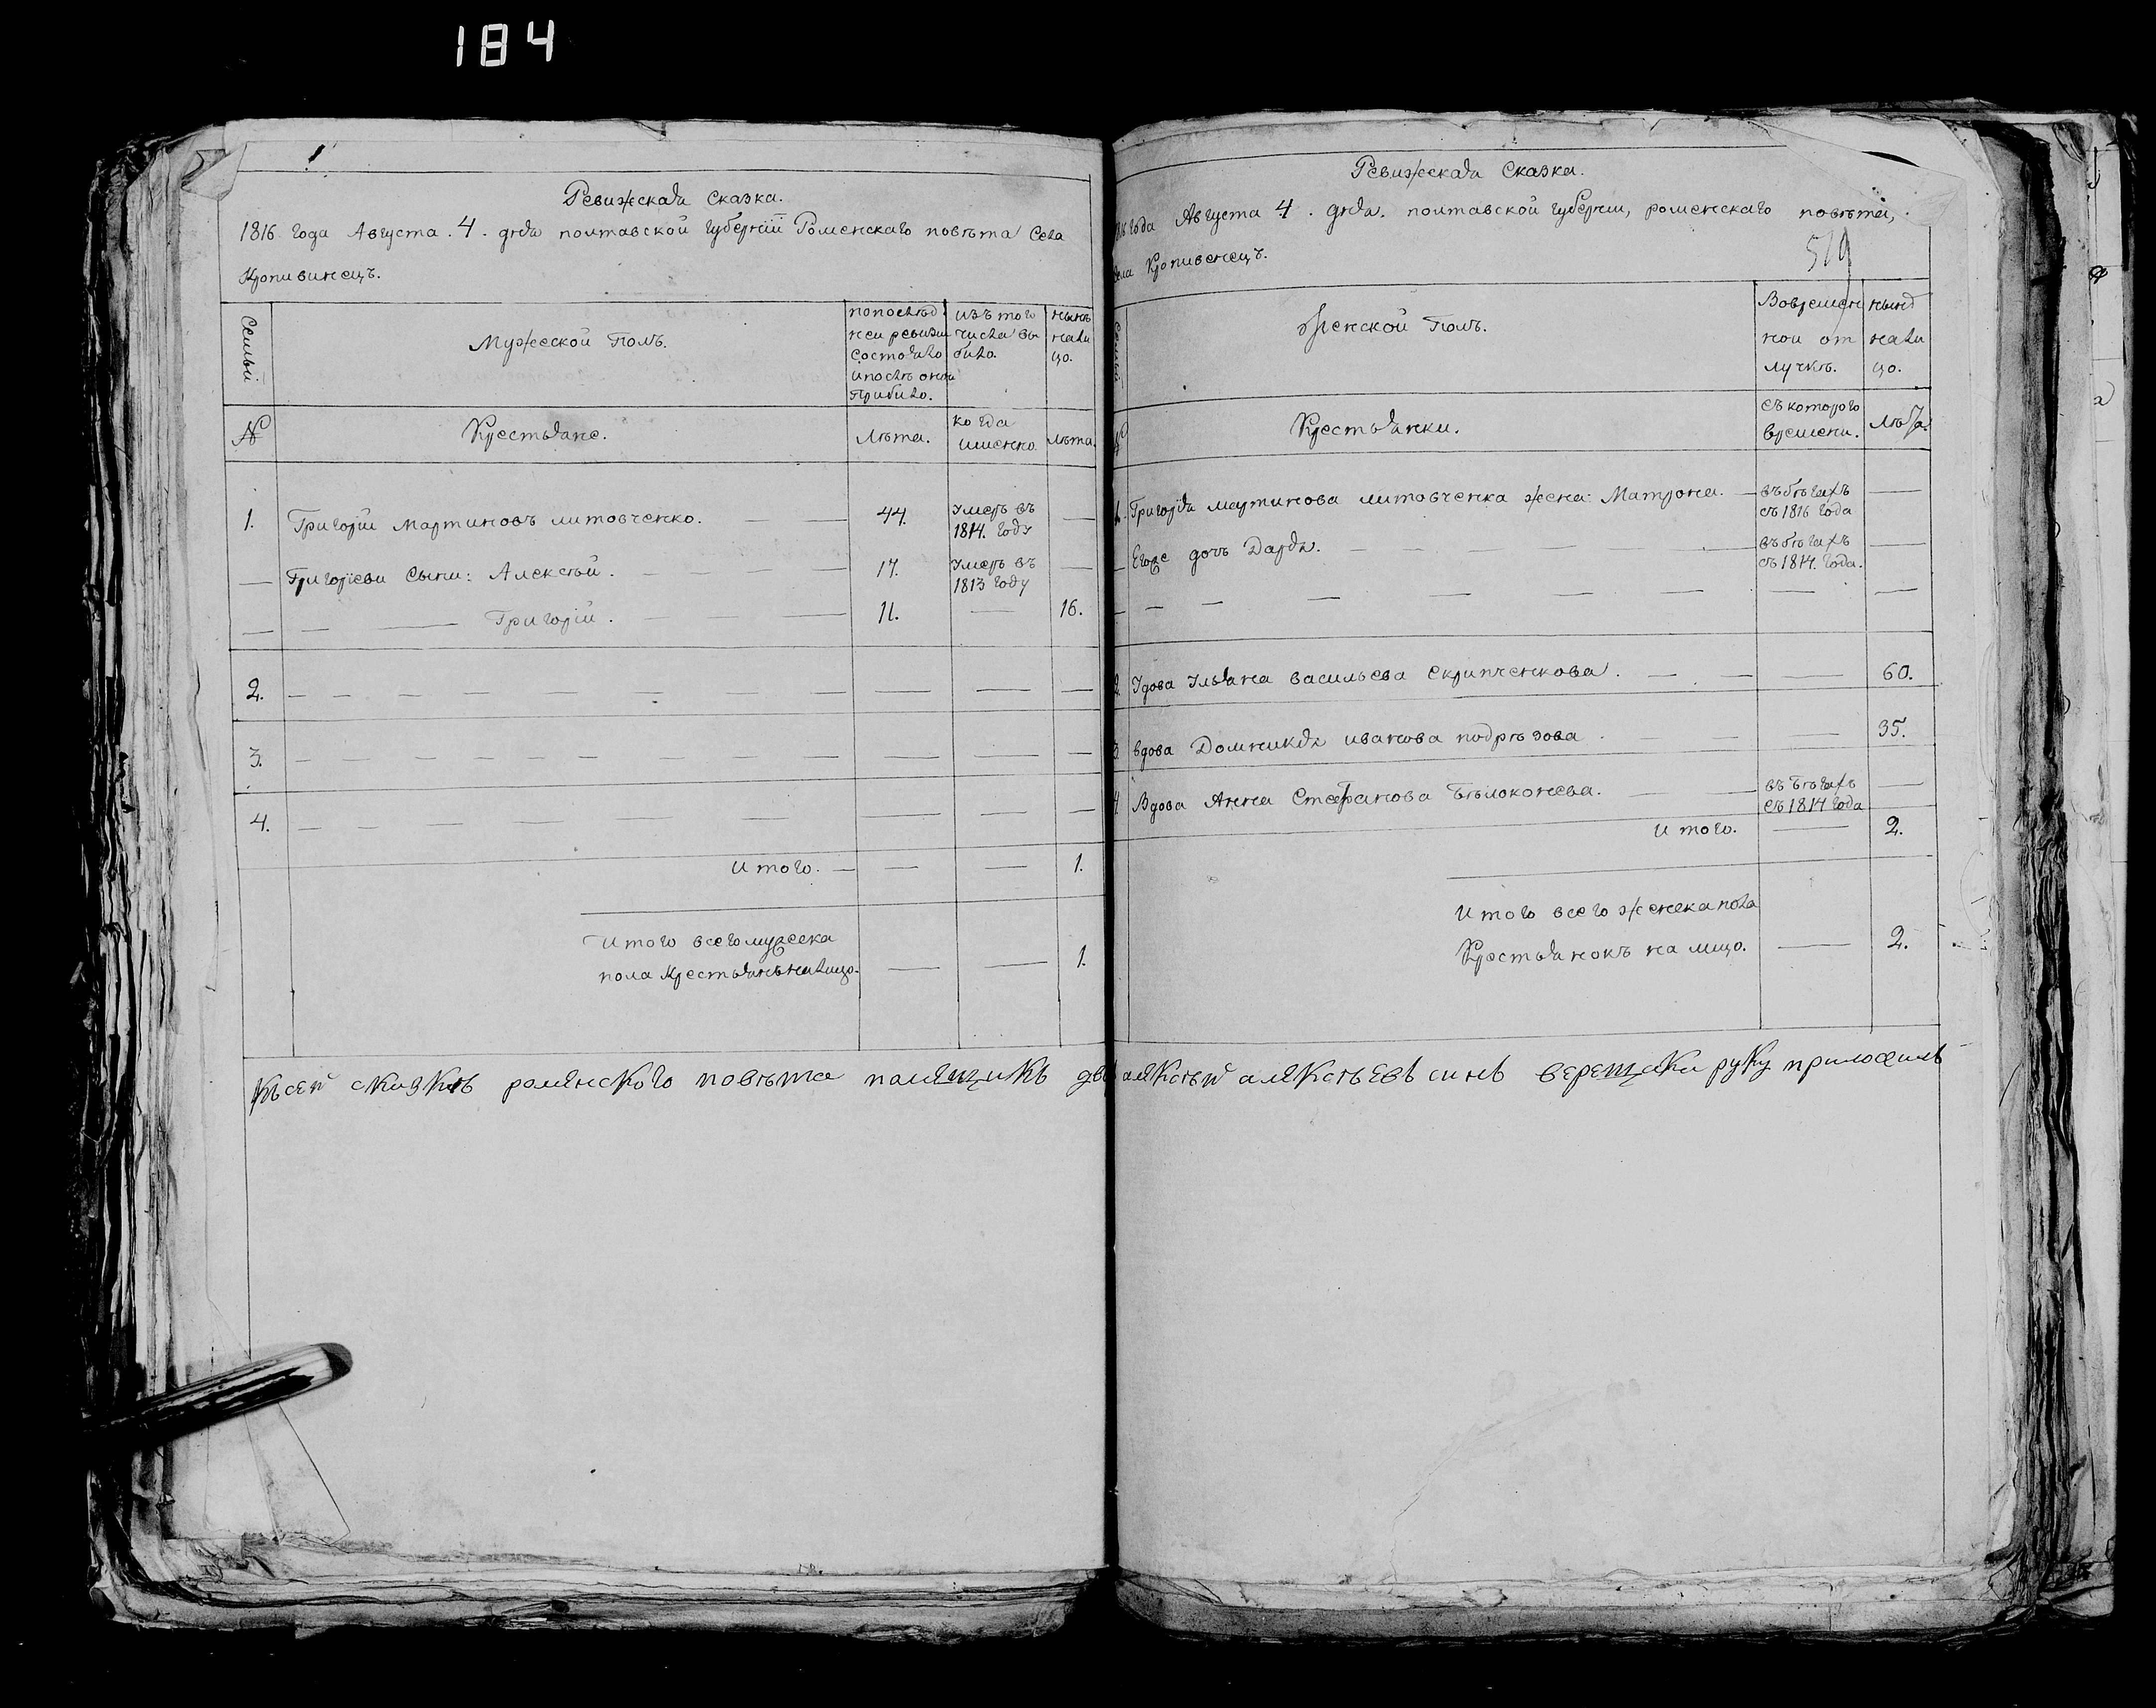 184
Ревижская Сказка.
1816 года Августа . 4 . дня полтавской губернїи Роменскаго повѣта Села
Кропивинецъ.
Семьи
Мужеской Полъ.
по послѣд
ней ревизи
состояло
и послѣ оной
прибыло.
изъ того
числа вы
было.
нынѣ
нали
цо.
№
Крестьяне.
Лѣта.
когда
именно.
Лѣта.
1. Григорїй Мартиновъ литовченко. 44. Умеръ въ
1814. году
Григорїеви сыни: Алексѣй. 17. Умеръ въ
1813 году
Григорїй. 11. 16.
2.
3.
4.
Итого. 1.
Итого всего мужеска
пола крестьянъ налицо. 1.
Къ сей сказкѣ роменского повѣта помѣщикъ
Ревижская Сказка.
года Августа 4 . дня. полтавской губернии, роменскаго повѣта,
519
Кропивенецъ.
Женской Полъ.
Во времен
ной от
лучкѣ.
нынѣ
нали
цо.
Крестьянки.
съ которого
времени.
Лѣта.
1. Григорїя мартинова литовченка жена: Матрона. въ бѣгахъ
съ 1816 года
Егоже дочь Дарья. въ бѣгахъ
съ 1814. года.
2 Удова Ульяна васильева скрипченкова. 60.
3 Вдова Домникия иванова подрѣзова 35.
4 Вдова Анна Стефанова Бѣлоконева. въ бѣгахъ
съ 1814 года
Итого. 2.
Итого всего женска пола
Крестьянокъ на лицо. 2.
алексѣй алексѣевъ синъ верещака руку приложилъ